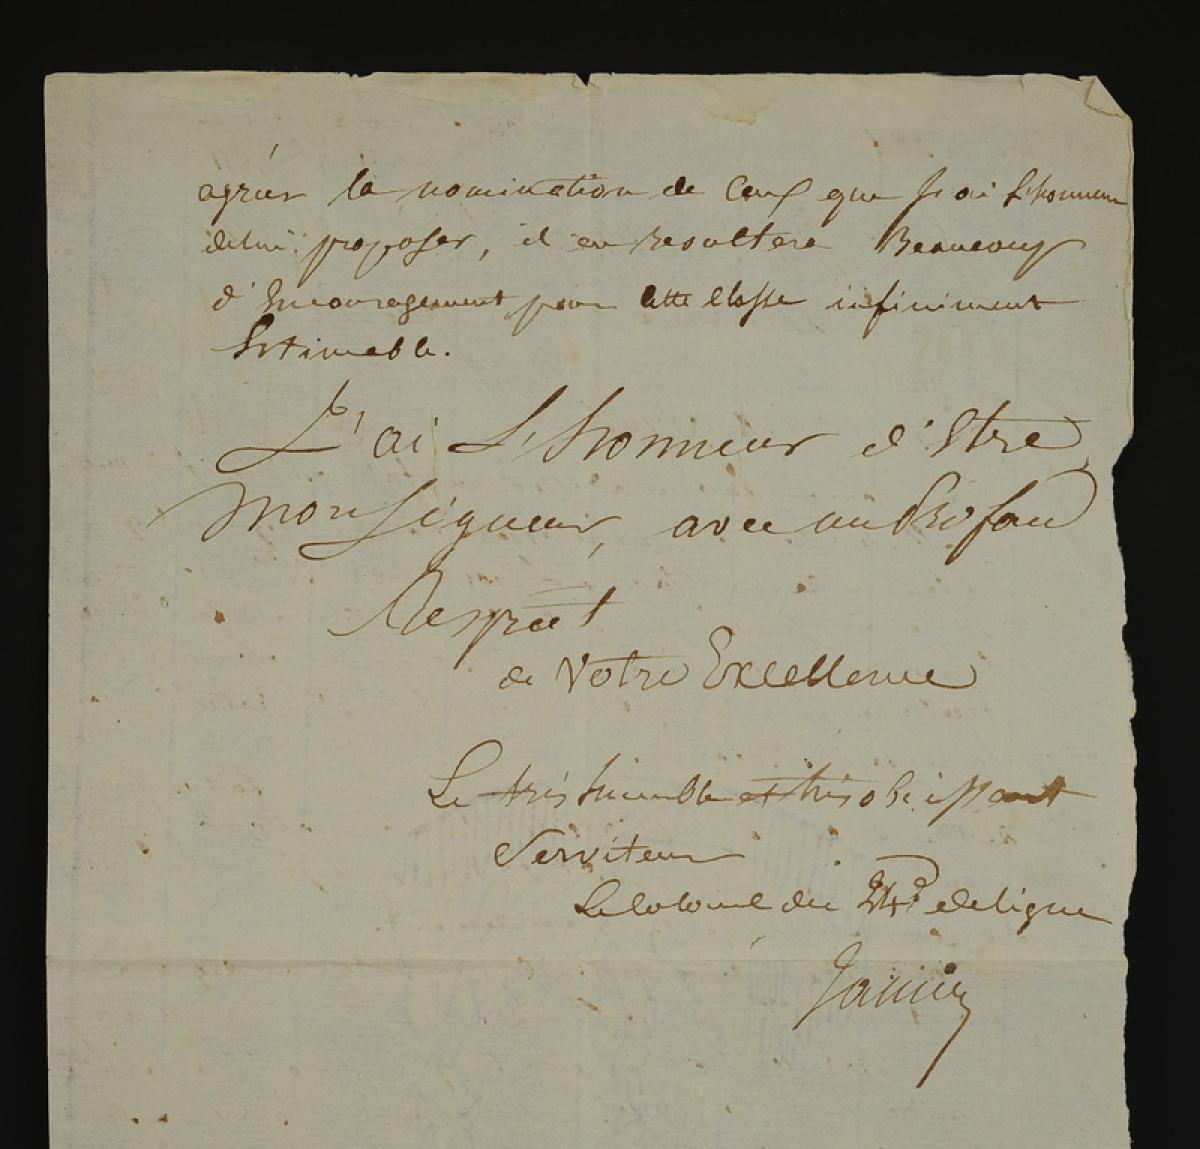 agréer la nomination de Ceux que J'ai L'honneur
delui proposer, il en Resultera Beaucoup
d'Encouragement pour Cette Classe infiniment
Estimable.
J'ai L'honneur d'Etre
Monseigneur, avec un Profond
Respect
de Votre Excellence
Le très humble et très obeissant
Serviteur
Le Colonel du 24e de ligne
Jamin